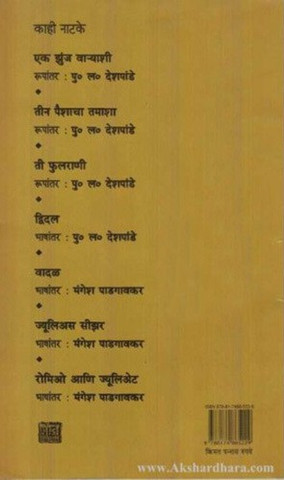 काही नाटके
एक झुंज वाऱ्याशी
रूपांतर : पु० ल० देशपांडे
तीन पैशाचा तमाशा
रूपांतर : पु० ल० देशपांडे
ती फुलराणी
रूपांतर : पु० ल० देशपांडे
द्विदल
भाषांतर : पु० ल० देशपांडे
वादळ
भाषांतर : मंगेश पाडगावकर
ज्यूलिअस सीझर
भाषांतर : मंगेश पाडगावकर
रोमिओ आणि ज्यूलिएट
भाषांतर : मंगेश पाडगावकर
किंमत पन्नास रुपये
www.Akshardhara.com